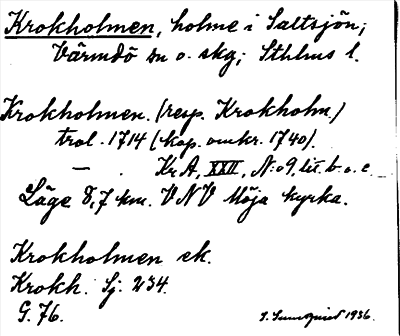 Krokholmen, holme i Saltsjön;
Värmdö sn o. skg; Sthlms l.
Krokholmen. (resp. Krokholm)
trol. 1714 (kop. omkr. 1740).
— . Kr.A, XXII, N:o 9, lit. b. o. c.
Läge 8,7 km. VNV Möja kyrka.
Krokholmen ek.
Krokh. Sj. 234.
G. 76.
1936.